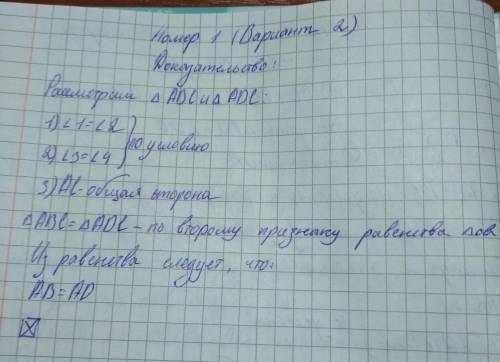 Номер 1 (Вариант 2)
Доказательство:
Рассмотрим △ ADC и △ ADC:
1) ∠1=∠2
2) ∠3=∠4 } по условию
3) AC - общая сторона
△ABC=△ADC - по второму признаку равенства
Из равенства следует, что:
AB=AD